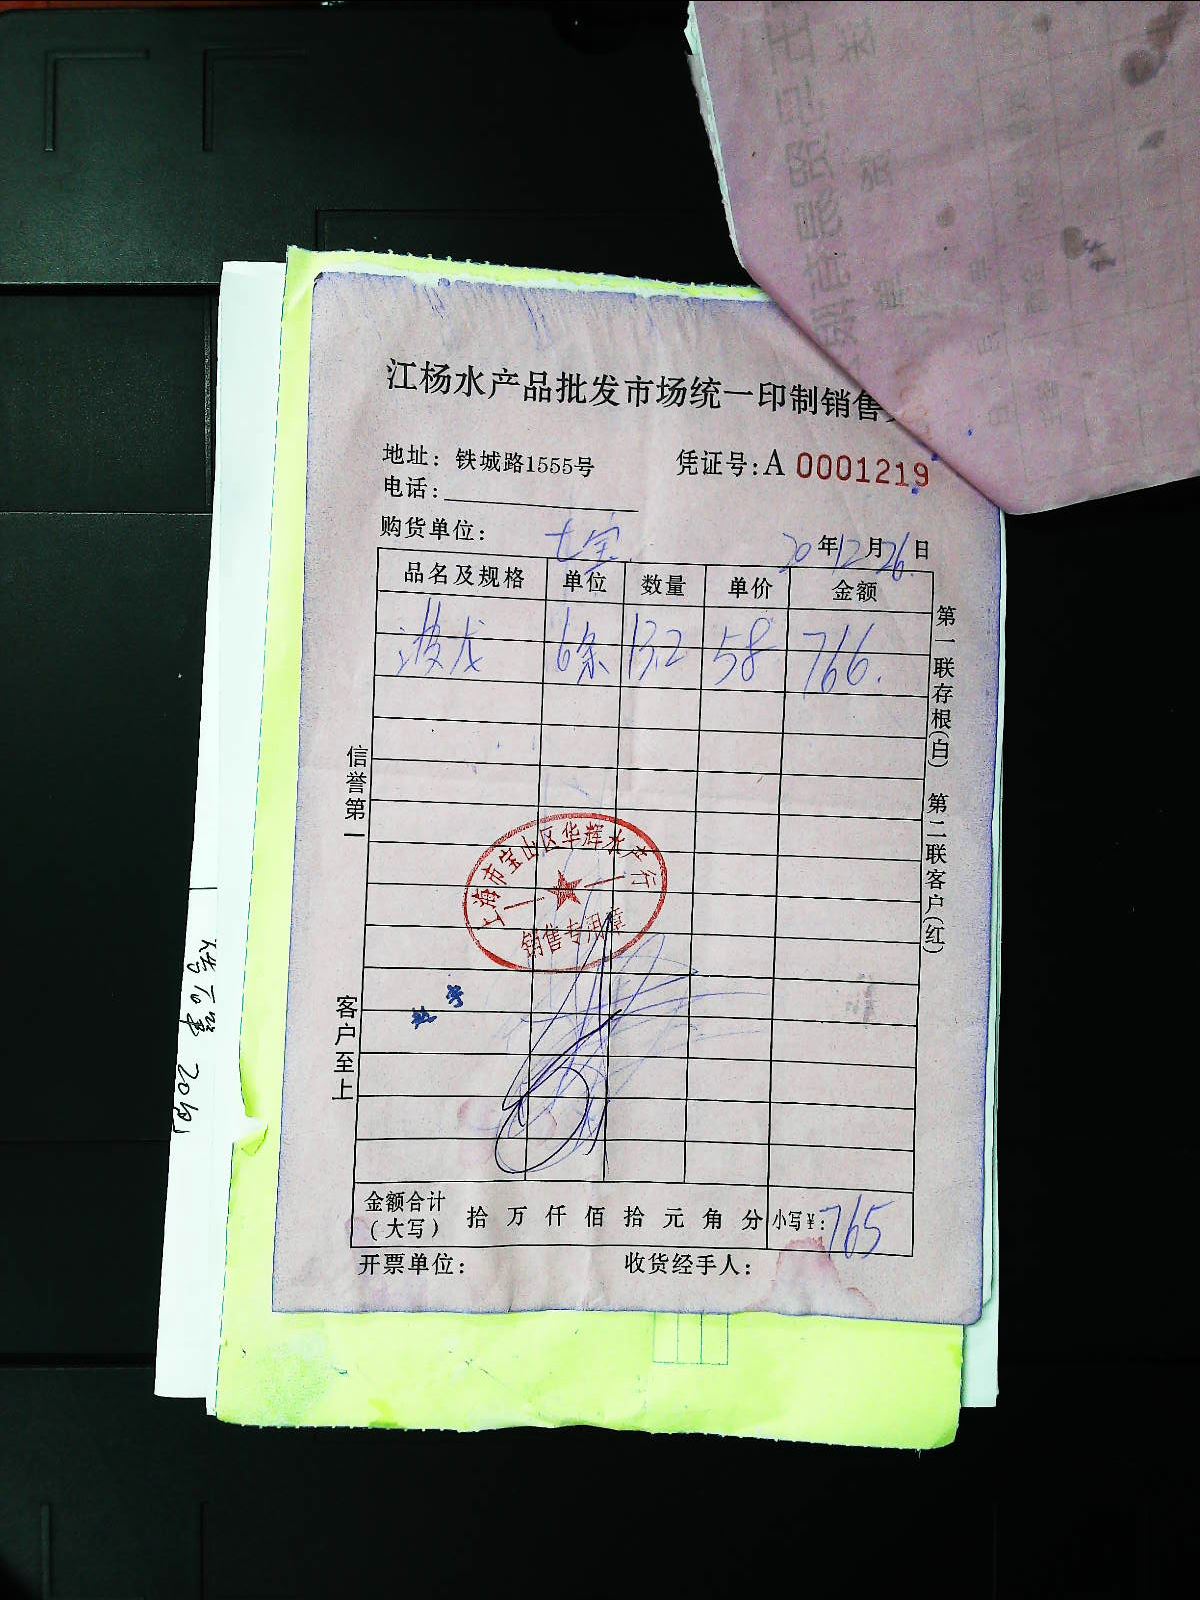 江杨水产品批发市场统一印制销售
地址：铁城路1555号
凭证号：A 0001219
电话：
购货单位： 七宝
20年12月26日
品名及规格 单位 数量 单价 金额
波龙 6条 13.2 58 766.
信誉第一
客户至上
第一联存根(白) 第二联客户(红)
上海市宝山区华辉水产行
销售专用章
金额合计（大写） 拾 万 仟 佰 拾 元 角 分 小写¥：765
开票单位： 收货经手人：